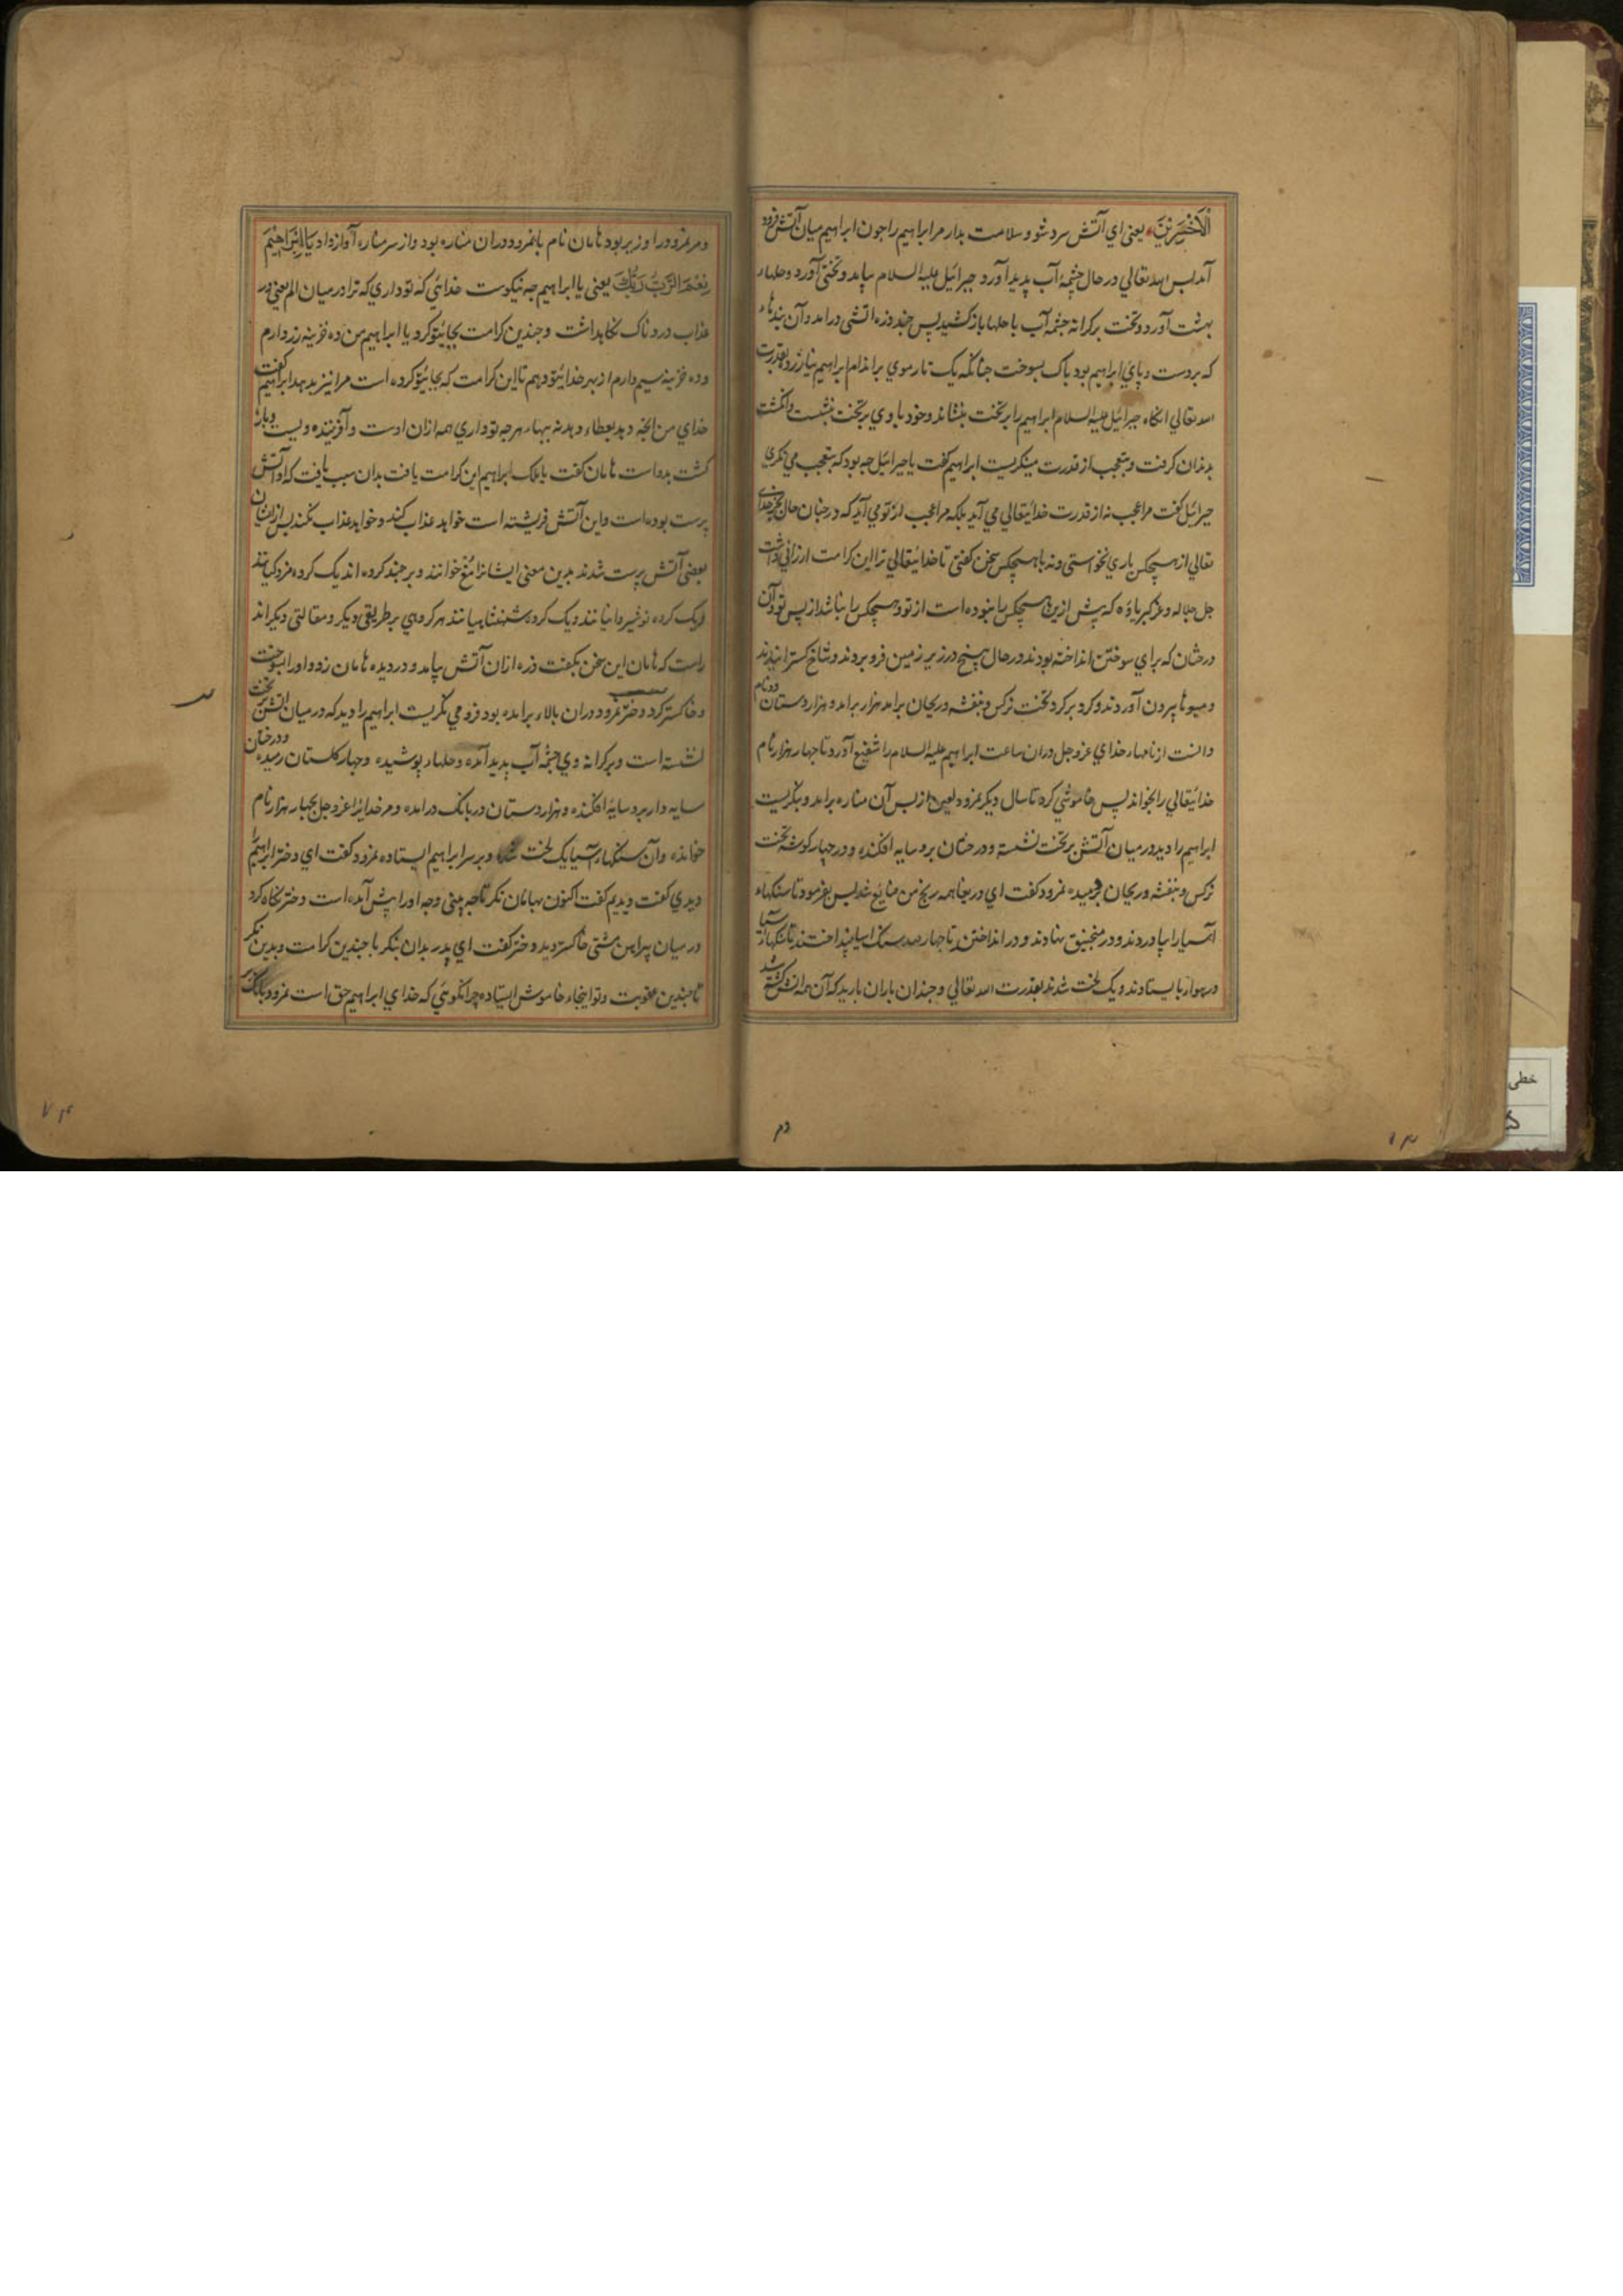 الاخسرین یعنی ای آتش سرد شو و سلامت بدار مر ابراهیم را جون ابراهیم میان آتش فرود
آمد بس الله تعالی در حال چشمهٔ آب پدید آورد و جبرائیل علیه السلام بیامد و تختی آورد و حلهاء
بهشت آورد و تخت برکرانه چشمه آب با حلها باز کشید پس چند ذره اتشی درامد وآن بندهاء
که بردست و پای ابراهیم بود پاک بسوخت جنانکه یک تار موی بر اندام ابراهیم نیازرد بقدرت
الله تعالی انکاه جبرائیل علیه السلام ابراهیم را بر تخت بنشاند و خود با وی بر تخت بنشست و انکشت
بدندان کرفت و بتعجب از قدرت مینکریست ابراهیم کفت یا جبرائیل جه بود که بتعجب می نکری
جبرائیل کفت مرا عجب نه از قدرت خدایتعالی می آید بلکه مرا عجب از تو می آید که درجنان حال بجز خدای
تعالی از هیچکس یاری نخواستی و نه با هیچکس سخن کفتی تا خدایتعالی ترا این کرامت ارزانی داشت
جل جلاله و عز کبریاؤه که پیش ازین هیچکس را نبوده است از تو و هیچکس را نباشد از پس تو و آن
درختان که برای سوختن انداخته بودند در حال بیخ در زیر زمین فرو بردند و شاخ کسترانیدند
و میوها بیرون آوردند و کرد بر کرد تخت نرکس و بنفشه و ریحان برامد هزار برامد و هزاردستان دو نام
دانست از نامهاء خدای عز وجل دران ساعت ابراهیم علیه السلام را شفیع آورد تا جهار هزار نام
خدایتعالی را بخواند پس خاموشی کرد تا سال دیکر نمرود لعین از بس آن مناره برامد و بنکریست
ابراهیم را دید در میان آتش بر تخت نشسته و درختان برو سایه افکنده و در جهار کوشه تخت
نرکس و بنفشه و ریحان دمیده نمرود کفت ای دریغا همه رنج من ضایع شد بس بفرمود تا سنکهاء
آسیا را بیاوردند و در منجنیق نهادند و در انداختند تا جهار صد سنک اسیا بینداختند تا سنکهاء آسیا
در هوا باز بایستادند و یک لخت شدند بقدرت الله تعالی و جندان باران بارید که آن همه اتش کشته شد
و مر نمرود را وزیر بود هامان نام با نمرود دران مناره بود و از سر مناره آواز داد یا ابراهیم
نعم الرب ربک یعنی یا ابراهیم جه نیکوست خدائی که تو داری که ترا در میان الم یعنی در
عذاب دردناک نکاهداشت و جندین کرامت بجای تو کرد یا ابراهیم من ده خزینه زر دارم
و ده خزینه سیم دارم از بهر خدای تو دهم تا این کرامت که بجای تو کرده است مرا نیز بدهد ابراهیم کفت
خدای من انجه دهد بعطاء دهد نه ببهاء هرجه تو داری همه ازان اوست و آفریننده ویست و باز
کشت بدواست هامان کفت یا ملک ابراهیم این کرامت یافت بدان سبب یافت که او آتش
پرست بوده است و این آتش فرشته است خواهد عذاب کند و خواهد عذاب نکند بس ازان
بعضی آتش پرست شدند بدین معنی ایشانرا مغ خوانند و بر جند کرده اند یک کروه مزدکیانند
و یک کروه نوشیروانیانند و یک کروه شهنشاهیانند هر کروهی بر طریقی دیکر و مقالتی دیکراند
راست که هامان این سخن بکفت ذره ازان آتش بیامد و در دیده هامان زد و او را بسوخت
و خاکستر کرد و دختر نمرود دران بالاء برامده بود فرو می نکریست ابراهیم را دید که در میان آتش بر تخت
نشسته است و برکرانه وی چشمه آب پدید آمده و حلهاء پوشیده و جهار کلستان رمیده و درختان
سایه دار برو سایه افکنده و هزاردستان در بانک درامده و مر خدایرا عز وجل بجهار هزار نام
خوانده و آن سنکهاء آسیا یک لخت شده و بر سر ابراهیم ایستاده نمرود کفت ای دختر ابراهیم را
دیدی کفت دیدم کفت اکنون بهامان نکر تا جه بینی و جه او را پیش آمده است دختر نکاه کرد
در میان پیراهن مشتی خاکستر دید دختر کفت ای پدر بدان بنکر با جندین کرامت و بدین نکر
با جندین عقوبت و تو اینجاء خاموش ایستاده جرا نکوئی که خدای ابراهیم حق است نمرود بانک بر
۲م
خطی